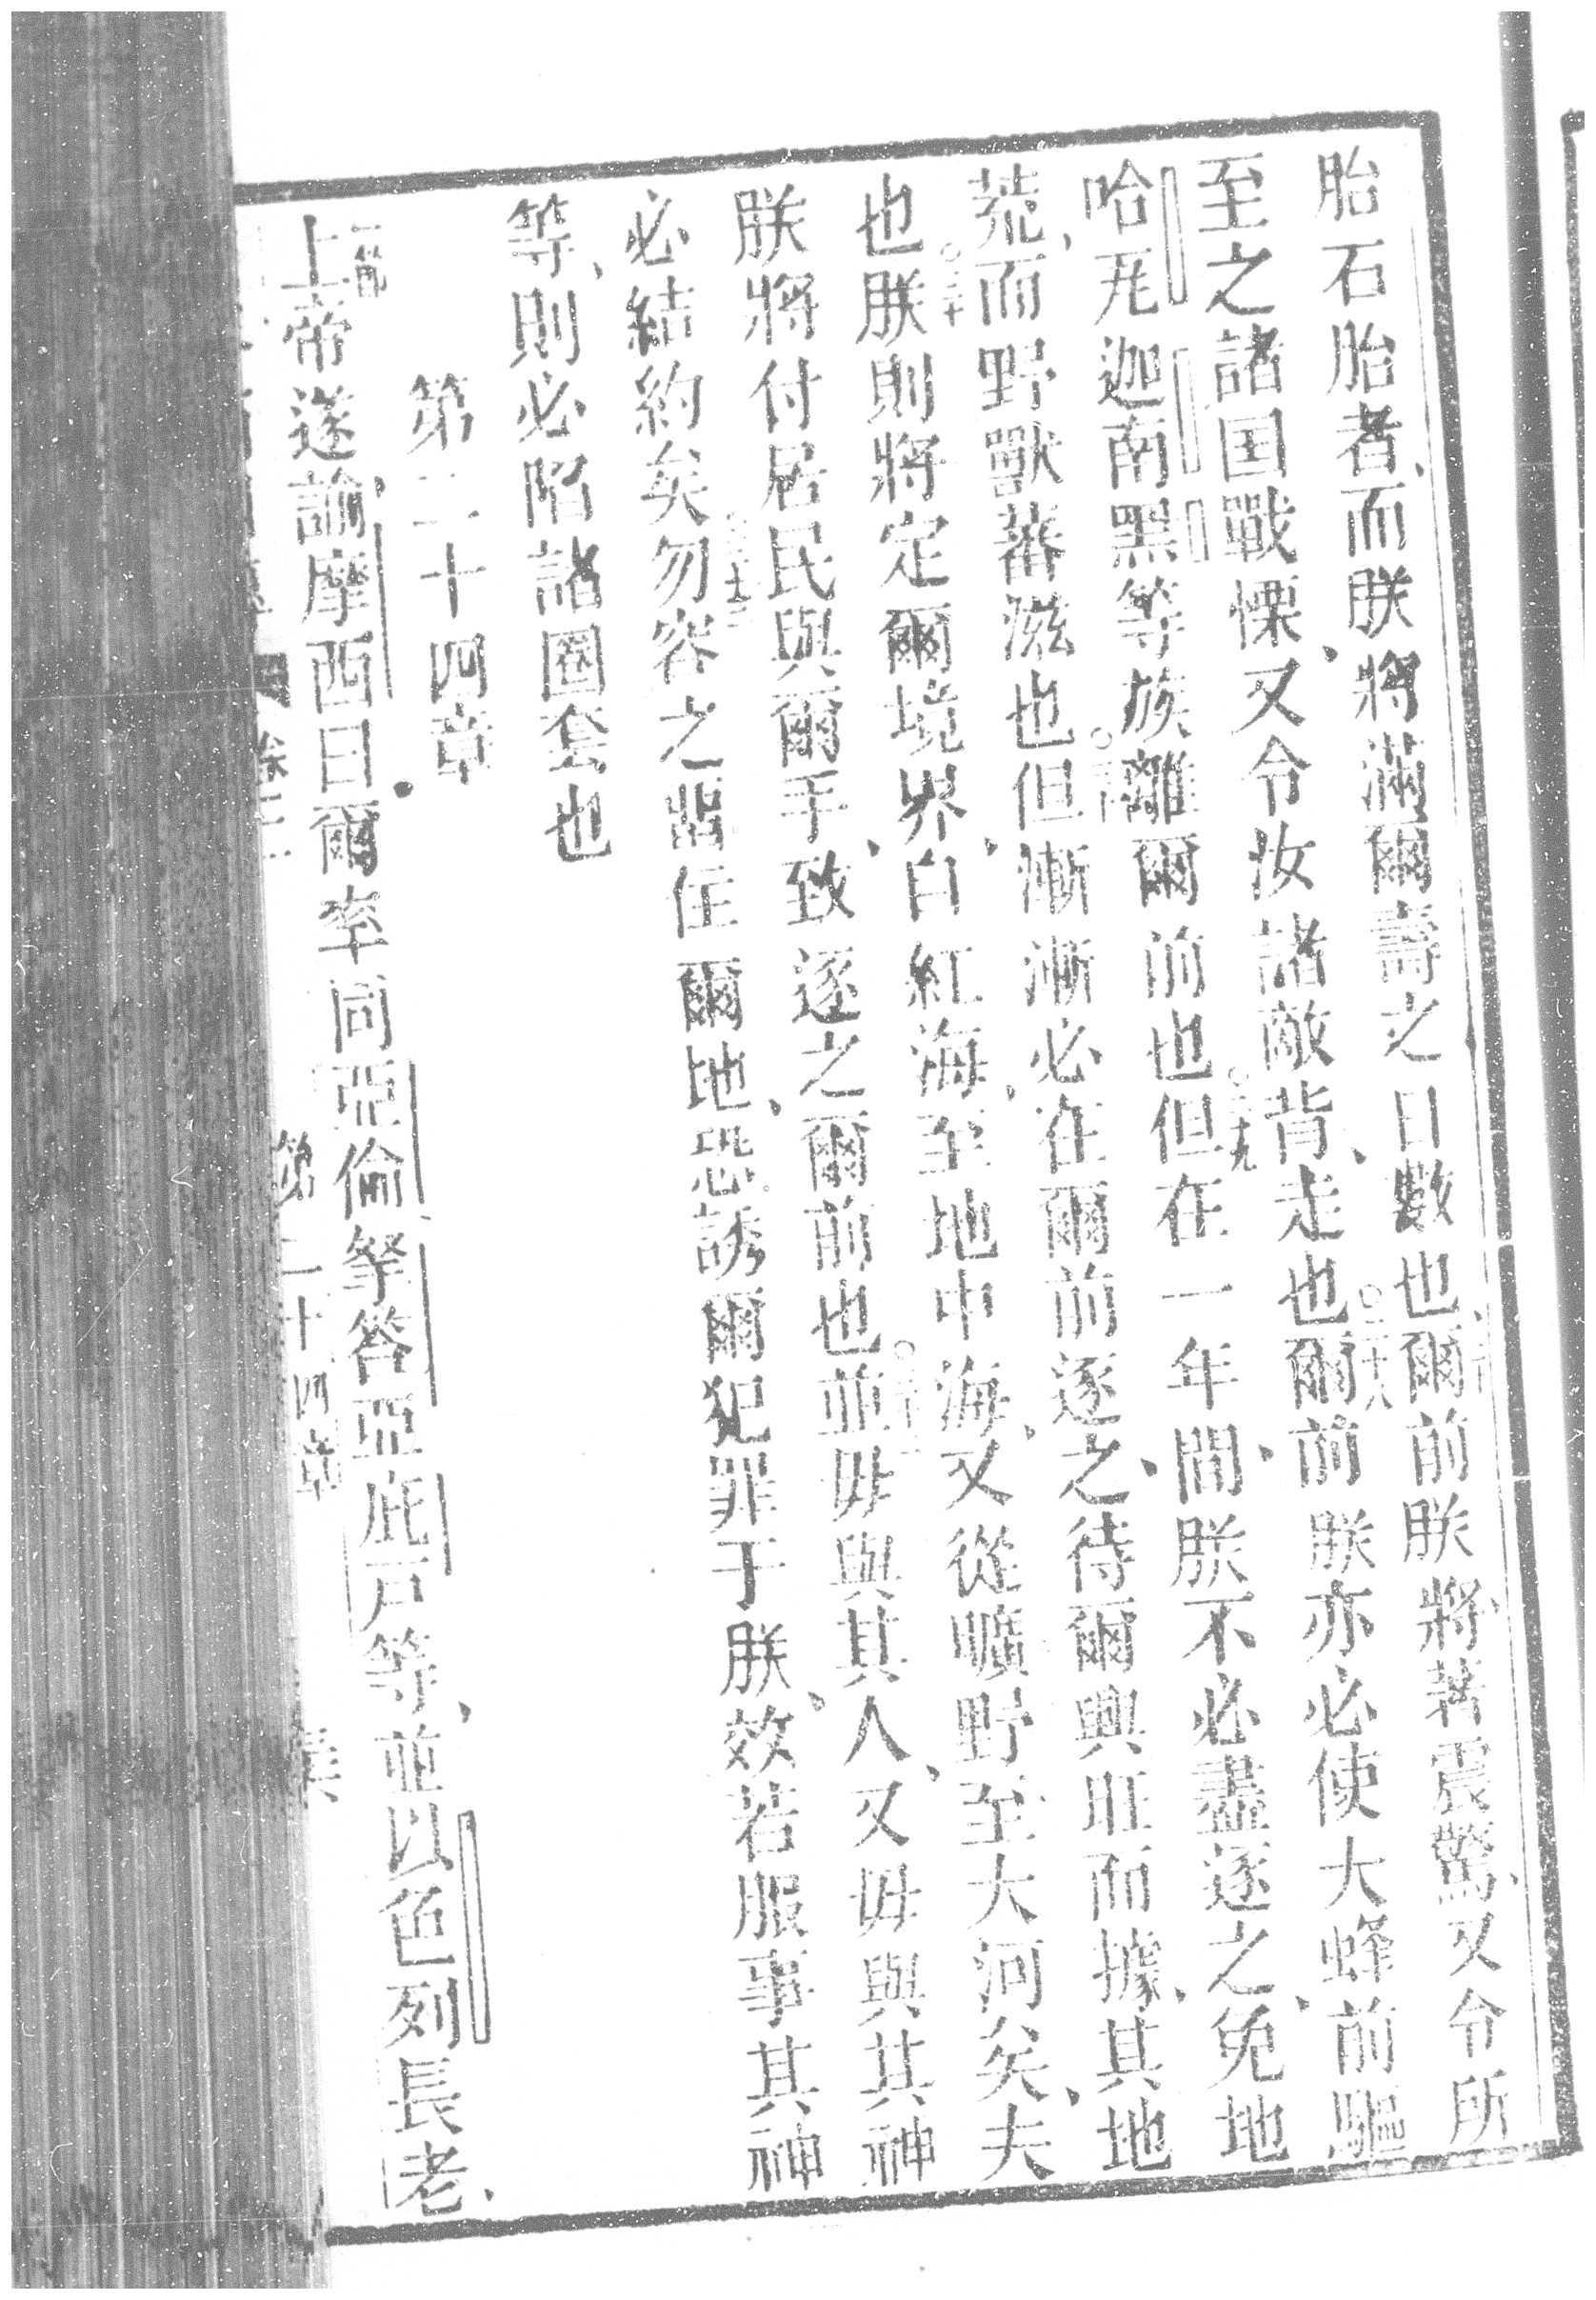 胎石胎者、而朕將滿爾壽之日數也、爾前朕將著震驚、又令所
至之諸国戰慄、又令汝諸敵背走也、○二十八爾前朕亦必使大蜂前驅
哈旡迦南黑等族離爾前也、○二十九但在一年間朕不必盡逐之、免地
荒、而野獸蕃滋也、○三十但漸漸必在爾前逐之、待爾興旺而據其地
也、○三十一朕則將定爾境界、自紅海、至地中海、又從曠野至大河矣、夫
朕將付居民與爾手、致逐之爾前也、○三十二並毋與其人、又毋與其神
必結約矣、○三十三勿容之居住爾地、恐誘爾犯罪于朕、效若服事其神
等、則必陷諸圈套也
第二十四章
一節上帝遂諭摩西曰、爾率同亞倫拏答亞庇戶等、並以色列長老、
卷二 第二十四章